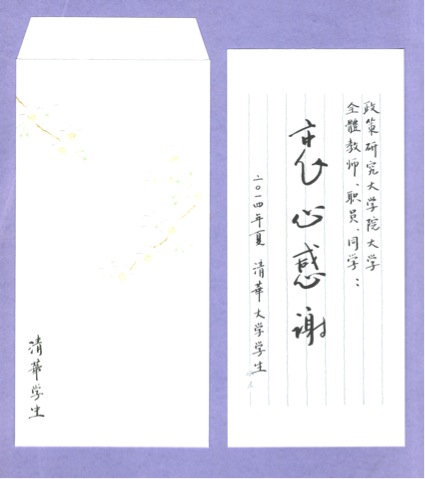 政策研究大学院大学
全體教师、职员、同学：
衷心感谢
二〇一四年夏 清華大学学生
清華学生